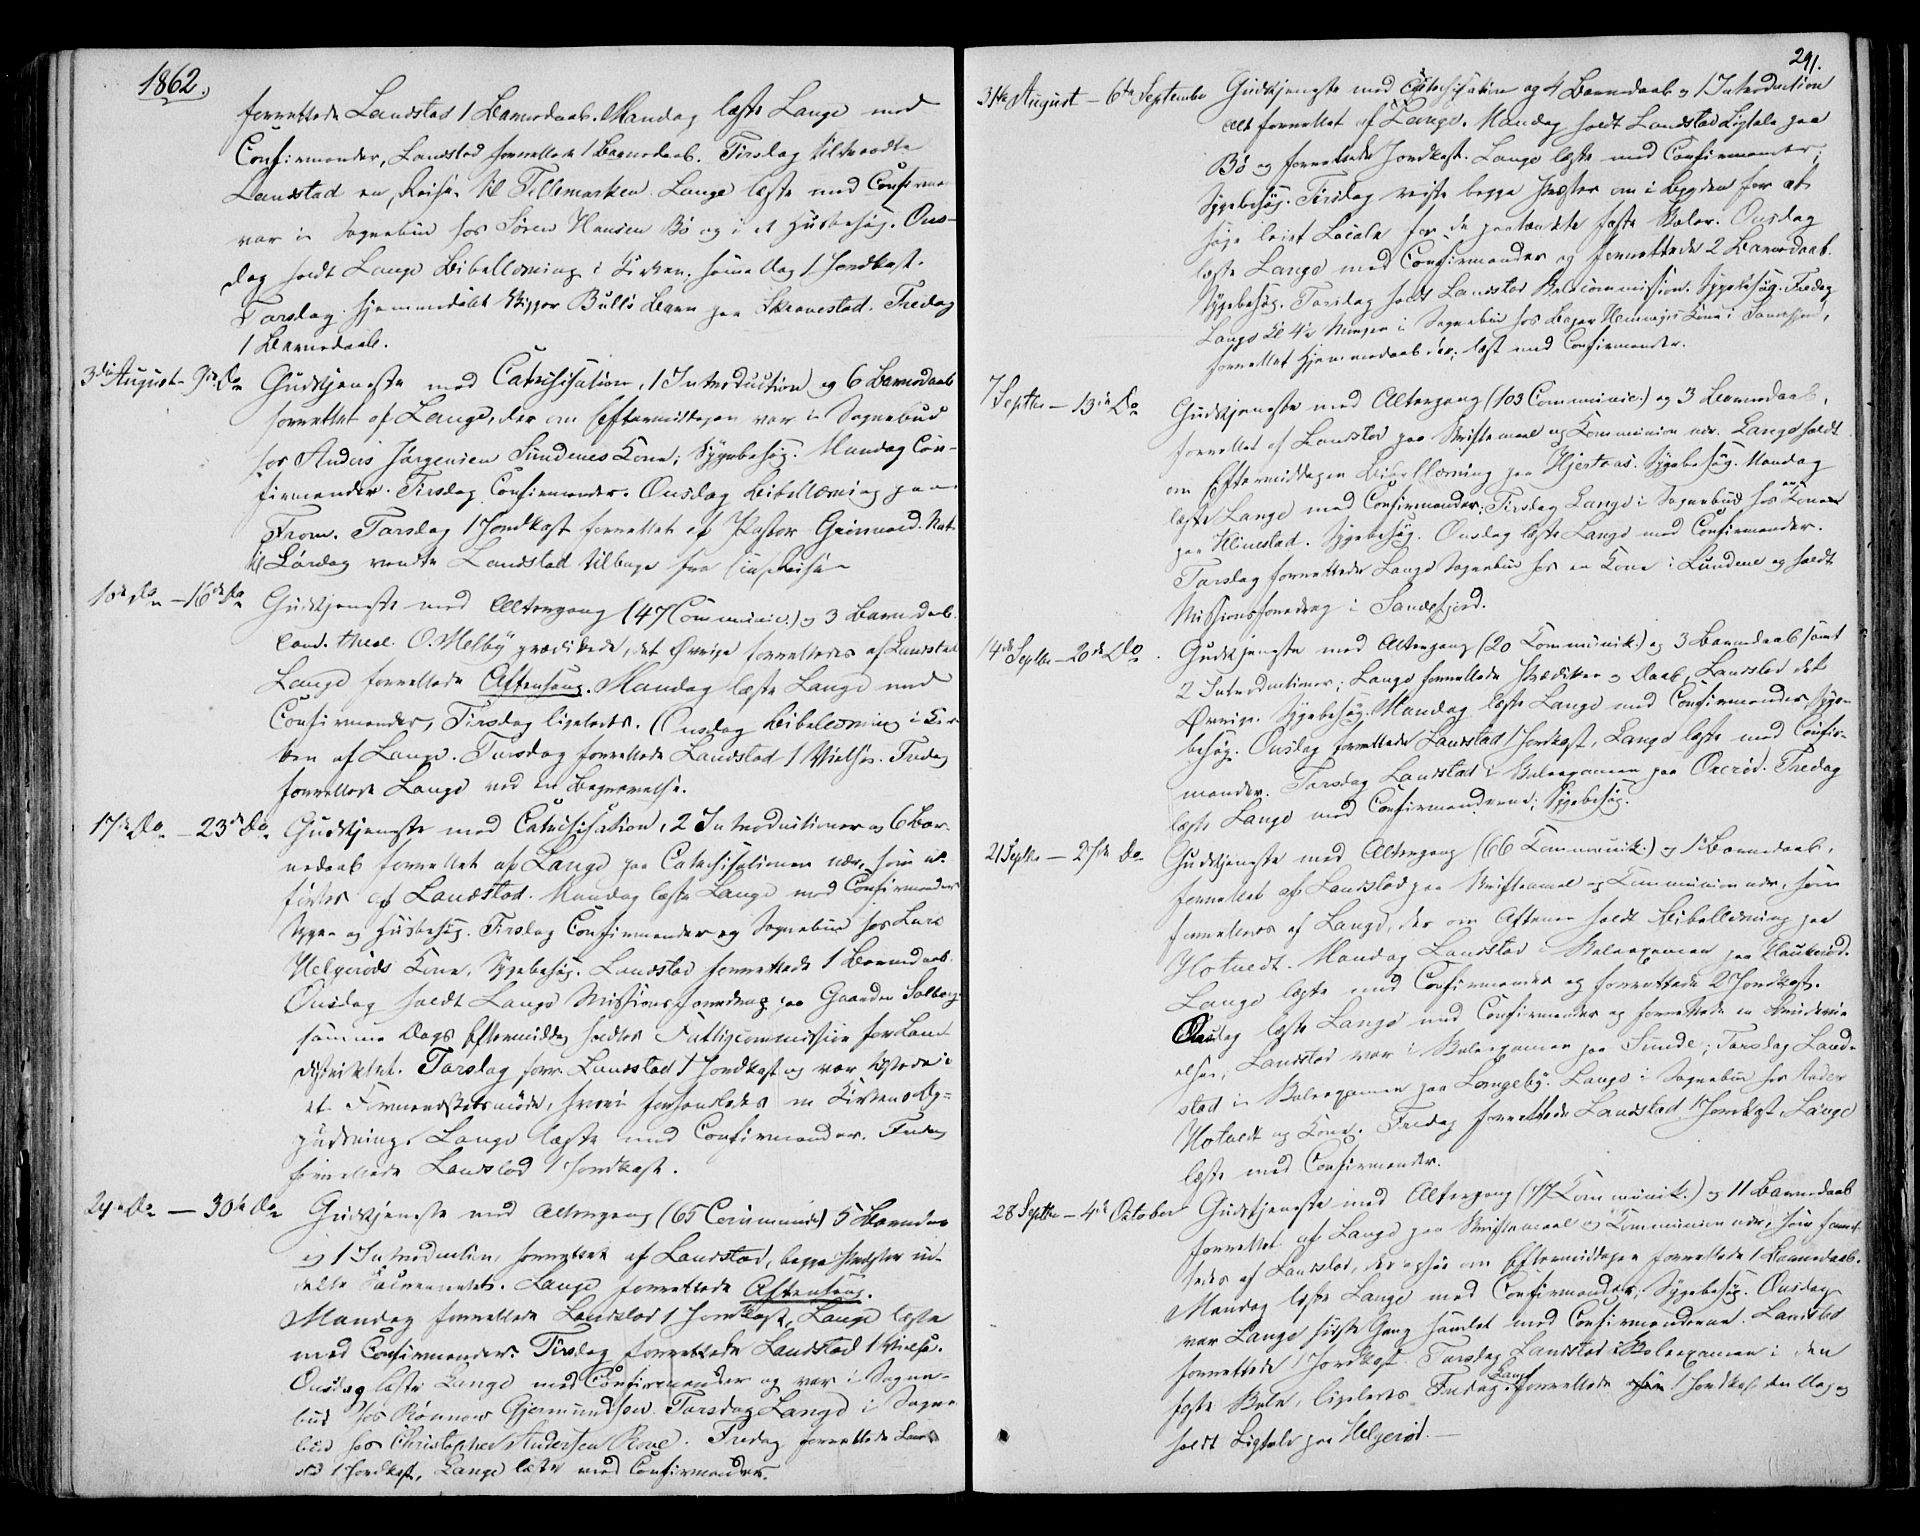 1862.
forrettede Landstad 1 Barnedaab. Mandag læste Lange med
Confirmander, Landstad forrettede 1 Barnedaab. Tirsdag tiltraadte
Landstad en Reise til Tellemarken. Lange læste med Confirm
var i Sognebud hos Søren Hansen Bø og i et Husbesøg. Ons-
dag holdt Lange Bibellæsning i Kirken, samme Dag 1 Jordkast.
Torsdag hjemmedøbt Skipper Bulls Barn paa Skravestad. Fredag
1 Barnedaab.
3die August - 9de Do Gudstjeneste med Catechisation, 1 Introduction og 6 Barnedaab
forrettet af Lange, der om Eftermiddagen var i Sognebud
hos Anders Jørgensen Sundenes Kone; Sygebesøg. Mandag Con-
firmander. Tirsdag Confirmander. Onsdag Bibellæsning paa
From. Torsdag 1 Jordkast forrettet af Pastor Grimsæd. Nat
til Lørdag vendte Landstad tilbage fra sin Reise
10de Do - 16de Do Gudstjeneste med Altergang (47 Communic.) og 3 Barnedaab.
Cand. theol. O. Melby prædikede, det Øvrige forrettedes af Landstad
Lange forrettede Aftensang. Mandag læste Lange med
Confirmander, Tirsdag ligeledes. Onsdag Bibellæsning i Kir-
ken af Lange. Torsdag forrettede Landstad 1 Vielse. Fredag
forrettede Lange ved en Begravelse.
17de Do - 23de Do Gudstjeneste med Catechisation, 2 Introductioner og 6 Bar-
nedaab forrettet af Lange paa Catechisationen nær, som ud-
førtes af Landstad. Mandag læste Lange med Confirmander
Syge- og Husbesøg. Tirsdag Confirmander og Sognebud hos Lars
Helgerøds Kone, Sygebesøg. Landstad forrettede 1 Barnedaab.
Onsdag holdt Lange Missionsforedrag paa Gaarden Solberg
samme Dags Eftermiddag holdtes Fattigcommission for Land-
distriktet. Torsdag forr. Landstad 1 Jordkast og var tilstede i
et Formandskabsmøde, hvori forhandledes om Kirkens Op-
pudsning. Lange læste med Confirmander. Fredag
forrettede Landstad 1 Jordkast.
24de Do - 30te Do Gudstjeneste med Altergang (65 Communic) 5 Barnedaab
og 1 Introduction, forrettet af Landstad, begge Præster ud-
delte Sacramentet. Lange forrettede Aftensang.
Mandag forrettede Landstad 1 Jordkast, Lange læste
med Confirmander. Tirsdag forrettede Landstad 1 Vielse.
Onsdag læste Lange med Confirmander og var i Sogne-
bud hos Rønnow Gjermundsen. Torsdag Lange i Sogne
bud hos Christopher Andersen Roue. Fredag forrettede Land-
stad 1 Jordkast, Lange læste med Confirmander.
291.
31te August - 6te September Gudstjeneste med Catechisation og 4 Barnedaab og 1 Introduction
alt forrettet af Lange. Mandag holdt Landstad Ligtale paa
Bø og forrettede Jordkast. Lange læste med Confirmander;
Sygebesøg. Tirsdag reiste begge Præster om i Bygden for at
søge leiet Locale for de paatænkte faste Skoler. Onsdag
læste Lange med Confirmander og forrettede 2 Barnedaab.
Sygebesøg. Torsdag holdt Landstad Skolecommission. Sygebesøg. Fredag
Lange Kl 4½ Morgen i Sognebud hos Bager Hennings Kone i Sandefjord,
forrettet Hjemmedaab der; læst med Confirmander.
7 Septbr - 13de Do Gudstjeneste med Altergang (103 Communic.) og 3 Barnedaab,
forrettet af Landstad paa Skriftemaal og Kommunion nær. Lange holdt
om Eftermiddagen Bibellæsning paa Hjertaas. Sygebesøg. Mandag
læste Lange med Confirmander; Tirsdag Lange i Sognebud hos Konen
paa Himestad. Sygebesøg. Onsdag læste Lange med Confirmander.
Torsdag forrettede Lange Sognebud hos en Kone i Lundene og holdt
Missionsforedrag i Sandefjord.
14de Septbr - 20de Do Gudstjeneste med Altergang (20 Kommunik.) og 3 Barnedaab samt
2 Introductioner; Lange forrettede Prædiken og Daab, Landstad det
Øvrige. Sygebesøg. Mandag læste Lange med Confirmander, Syge-
besøg. Onsdag forrettede Landstad 1 Jordkast, Lange læste med Confir-
mander. Torsdag Landstad i Skoleexamen paa Orerød. Fredag
læste Lange med Confirmanderne; Sygebesøg.
21 Septbr - 27de Do Gudstjeneste med Altergang (66 Kommunik.) og 1 Barnedaab,
forrettet af Landstad paa Skriftemaal og Kommunion nær, som
forrettedes af Lange, der om Aftenen holdt Bibellæsning paa
Hotvedt. Mandag Landstad i Skoleexamen paa Haukerød.
Lange læste med Confirmander og forrettede 2 Jordkast.
Onsdag læste Lange med Confirmander og forrettede en Brudevi-
else, Landstad var i Skoleexamen paa Sunde; Torsdag Land-
stad i Skoleexamen paa Lomgeby. Lange i Sognebud hos Anders
Hotvedt og Kone. Fredag forrettede Landstad 1 Jordkast, Lange
læste med Confirmander.
28 Septbr - 4de Oktober Gudstjeneste med Altergang (77 Kommunik.) og 11 Barnedaab
forrettet af Lange paa Skriftemaal og Kommunion nær, som forret-
tedes af Landstad, der ogsaa om Eftermiddagen forrettede 1 Barnedaab.
Mandag læste Lange med Confirmander, Sygebesøg. Onsdag
var Lange sidste Gang samlet med Confirmanderne. Landstad
forrettede 1 Jordkast. Torsdag Landstad i Skoleexamen i den
faste Skole, ligeledes Fredag. Lange forrettede 1 Jordkast den Dag og
holdt Ligtale paa Helgerød.